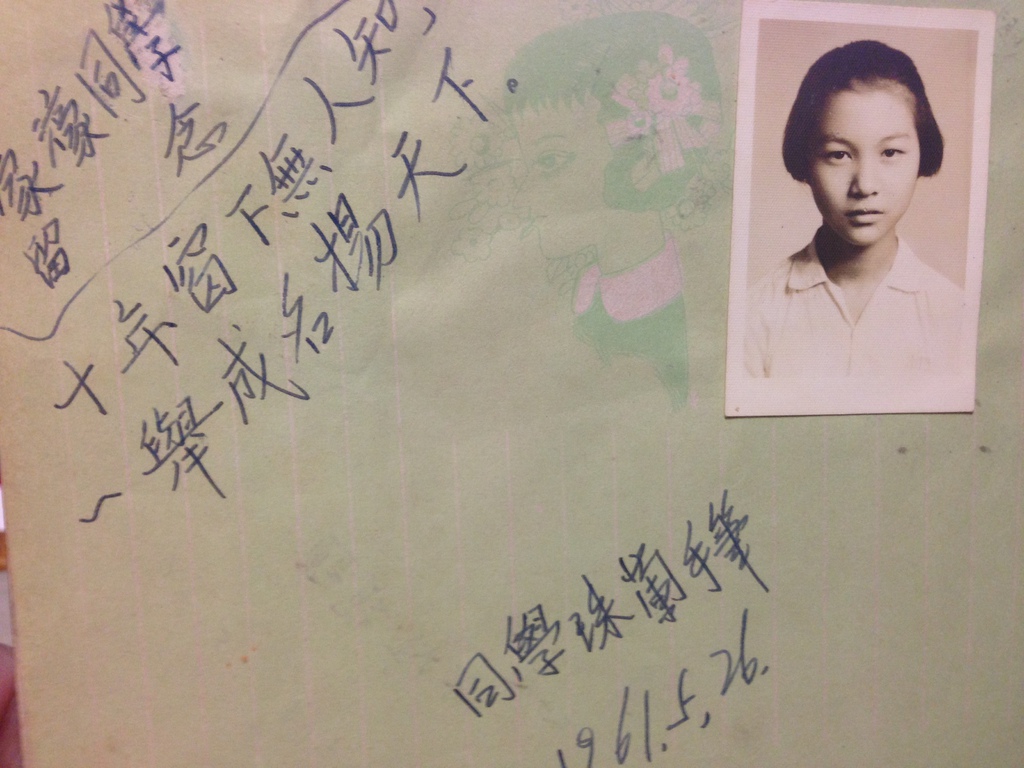 家濠同學
留念
十年窗下無人知，
一舉成名揚天下。
同學珠蘭手筆
1961.5.26.